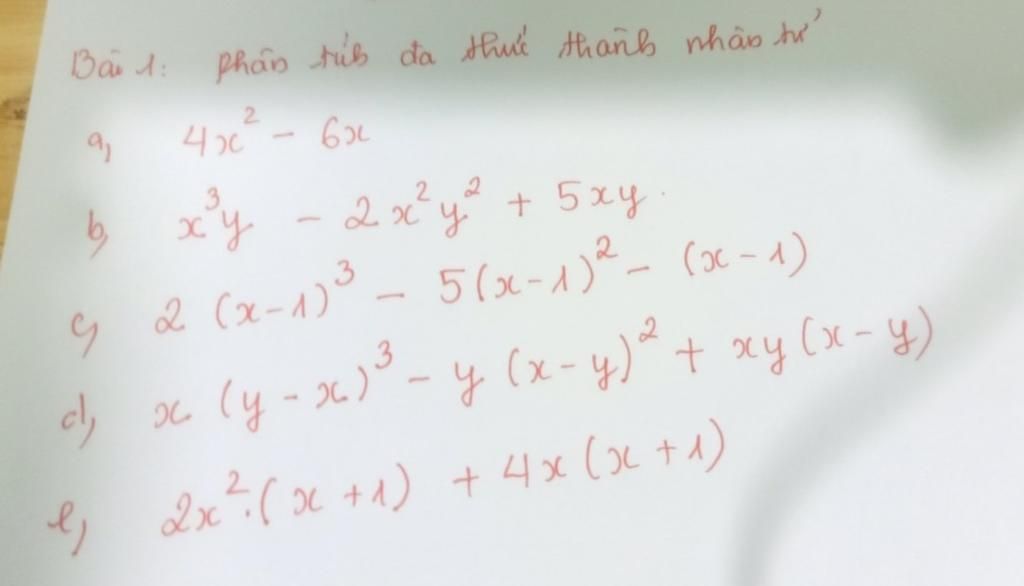 Bài 1: phân tích đa thức thành nhân tử
a, 4x² - 6x
b, x³y - 2x²y² + 5xy.
c, 2(x-1)³ - 5(x-1)² - (x-1)
d, x(y-x)³ - y(x-y)² + xy(x-y)
e, 2x².(x+1) + 4x(x+1)